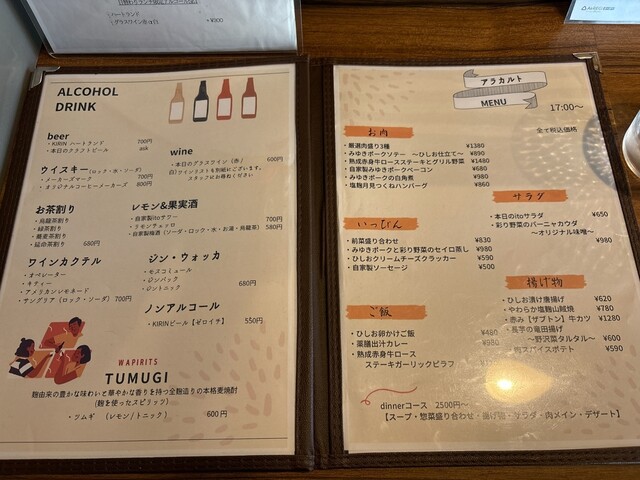 ・ハートランド
・グラスワイン赤or白 ¥900
ALCOHOL
DRINK
beer
・KIRIN ハートランド 700円
・本日のクラフトビール ask
ウイスキー(ロック・水・ソーダ)
・メーカーズマーク 700円
・オリジナルコーヒーメーカーズ 800円
お茶割り
・烏龍茶割り
・緑茶割り
・蕎麦茶割り
・延命茶割り 680円
ワインカクテル
・オペレーター
・キティー
・アメリカンレモネード
・サングリア (ロック・ソーダ) 700円
wine
・本日のグラスワイン (赤/ 600円
白)ワインリストも別紙にございます。
スタッフにお尋ねください
レモン&果実酒
・自家製itoサワー 700円
・リモンチェッロ
・自家製梅酒 (ソーダ・ロック・水・お湯・烏龍茶) 580円
ジン・ウォッカ
・モスコミュール
・ジンバック
・ジントニック 680円
ノンアルコール
・KIRINビール【ゼロイチ】 550円
WAPIRITS
TUMUGI
麹由来の豊かな味わいと華やかな香りを持つ全麹造りの本格麦焼酎
(麹を使ったスピリッツ)
・ツムギ (レモン/トニック) 600円
アラカルト
MENU
17:00〜
全て税込価格
お肉
・厳選肉盛り3種 ¥1380
・みゆきポークソテー 〜ひしお仕立て〜 ¥890
・熟成赤身牛ロースステーキとグリル野菜 ¥1480
・自家製みゆきポークベーコン ¥680
・みゆきポークの白角煮 ¥980
・塩麹月見つくねハンバーグ ¥860
いっぴん
・前菜盛り合わせ ¥830
・みゆきポークと彩り野菜のセイロ蒸し ¥980
・ひしおクリームチーズクラッカー ¥590
・自家製ソーセージ ¥500
ご飯
・ひしお卵かけご飯 ¥480
・薬膳出汁カレー ¥980
・熟成赤身牛ロース
ステーキガーリックピラフ
サラダ
・本日のitoサラダ ¥650
・彩り野菜のバーニャカウダ
〜オリジナル味噌〜 ¥980
揚げ物
・ひしお漬け唐揚げ ¥620
・やわらか塩麹山賊焼 ¥780
・赤み【ザブトン】牛カツ ¥1280
・長芋の竜田揚げ
〜野沢菜タルタル〜 ¥600
スパイスポテト ¥590
dinnerコース 2500円〜
【スープ・惣菜盛り合わせ・揚げ物・サラダ・肉メイン・デザート】